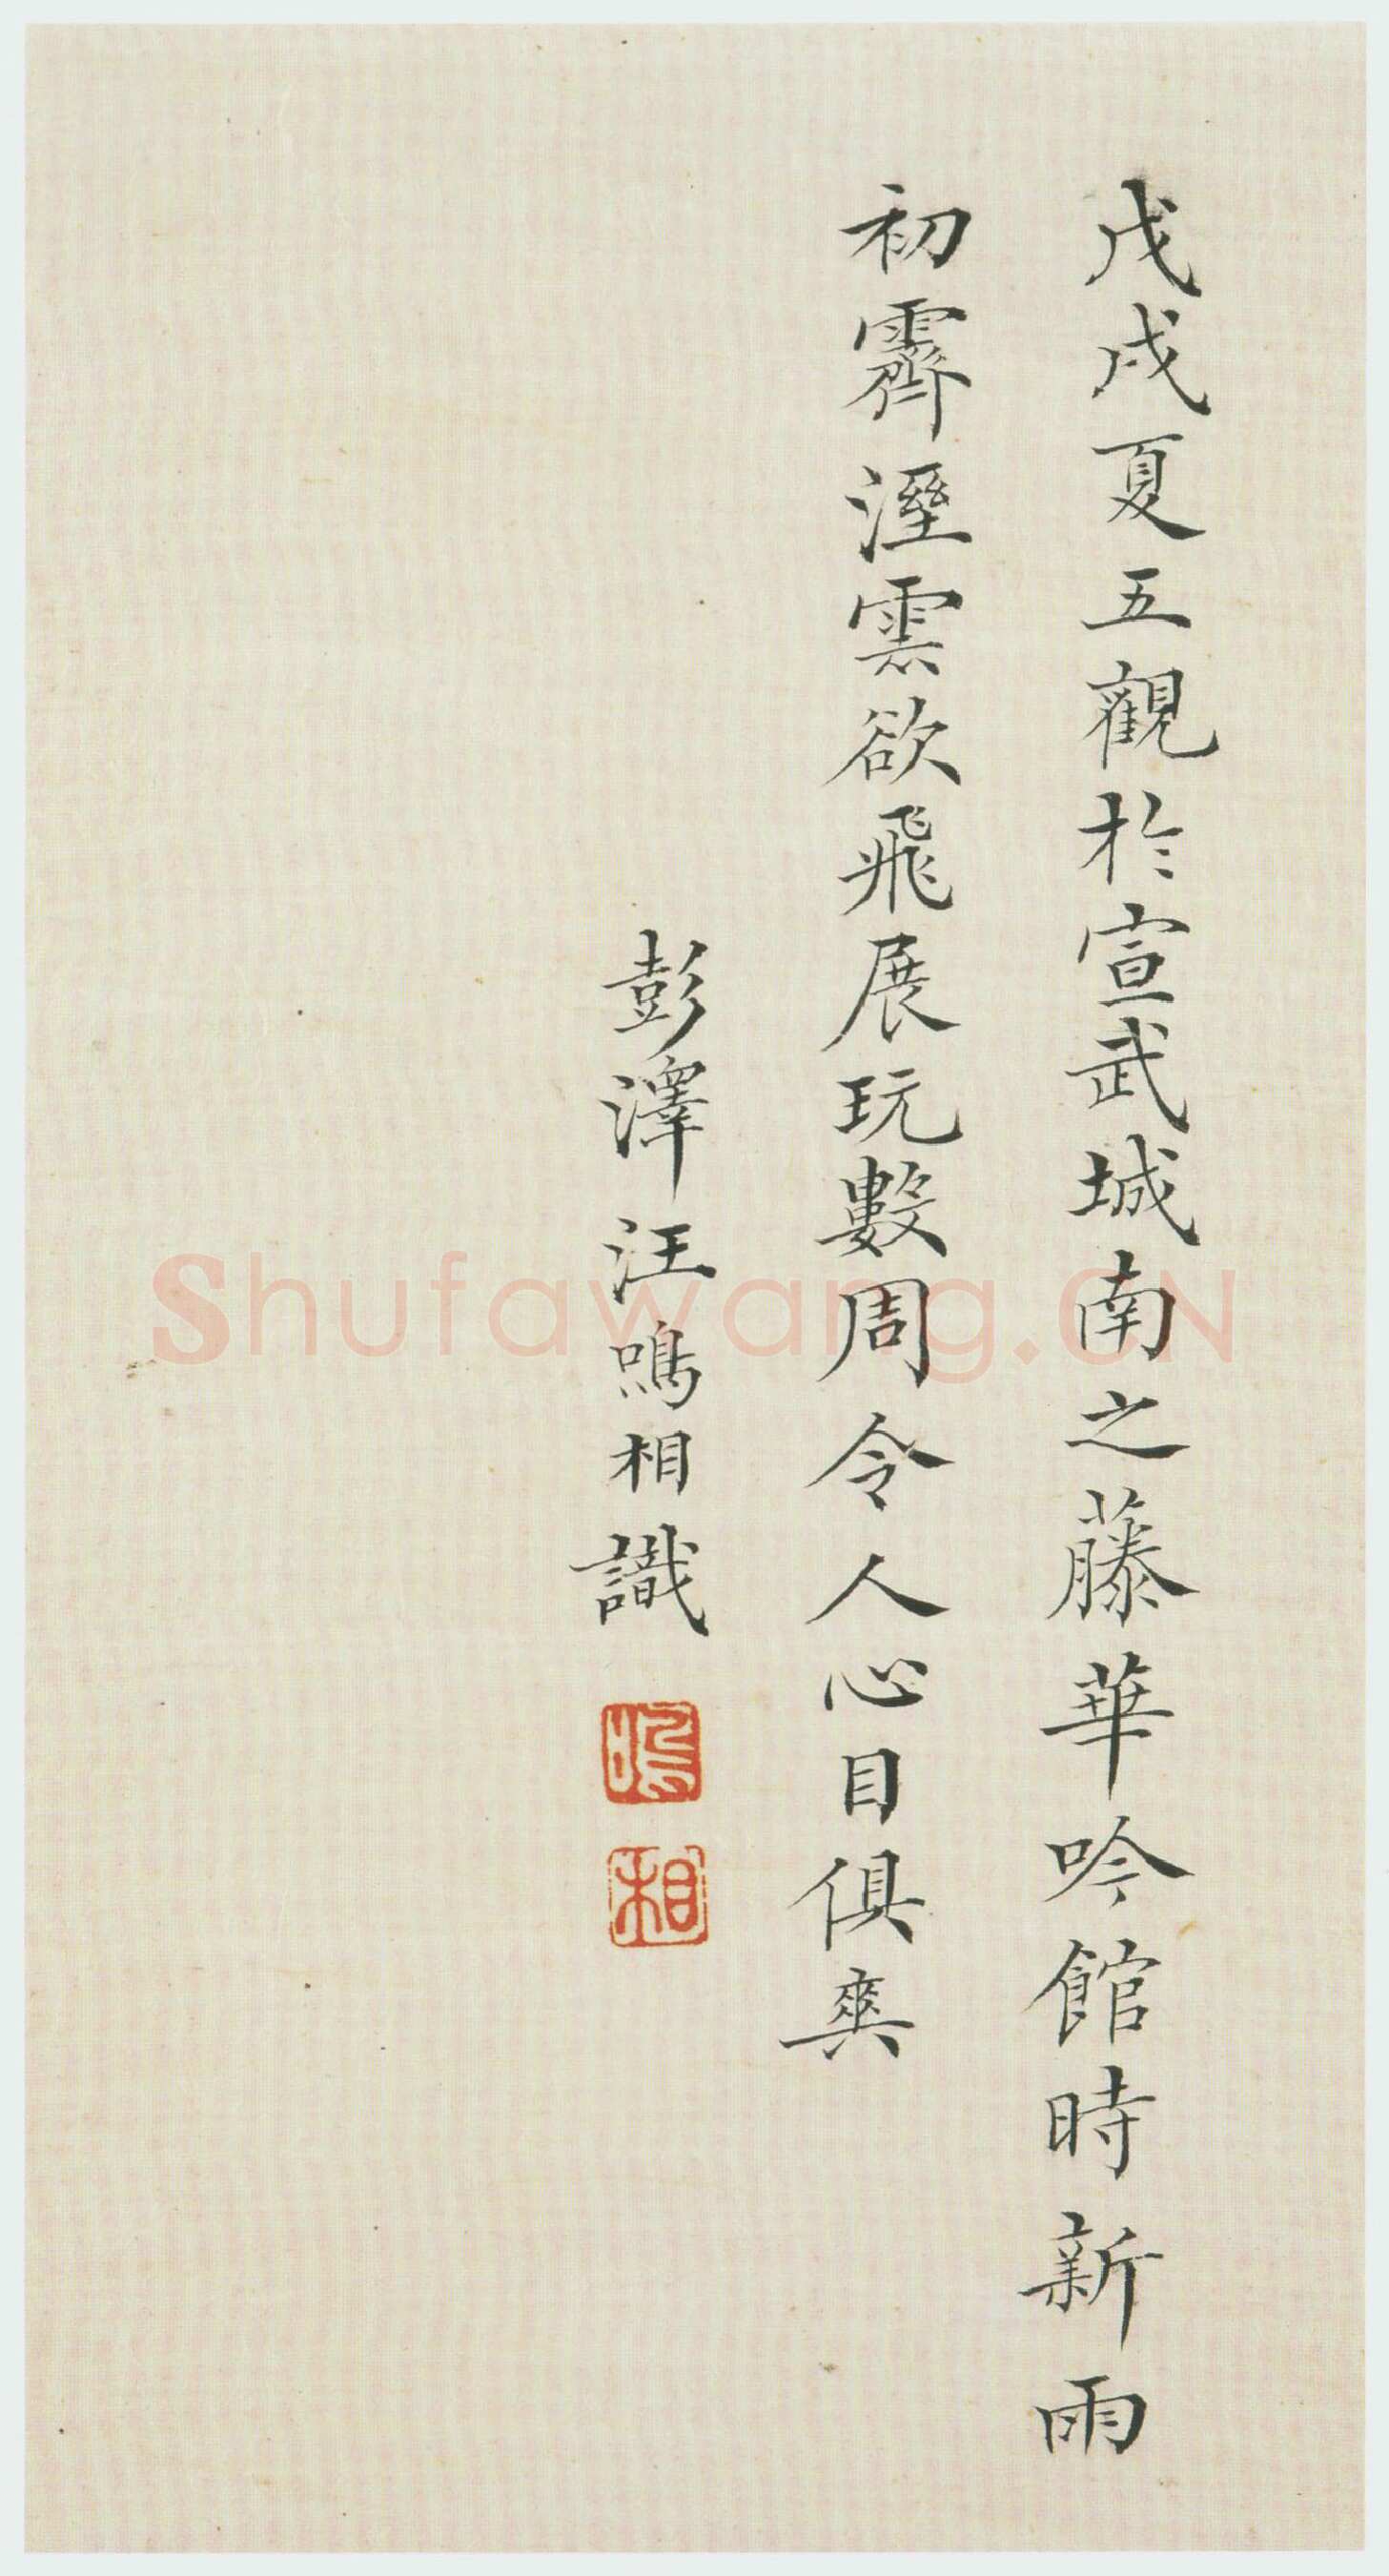 戊戌夏五觀於宣武城南之藤華吟館時新雨
初霽溼雲欲飛展玩數周令人心目俱爽
彭澤汪鳴相識
鳴
相
Shufawang.CN